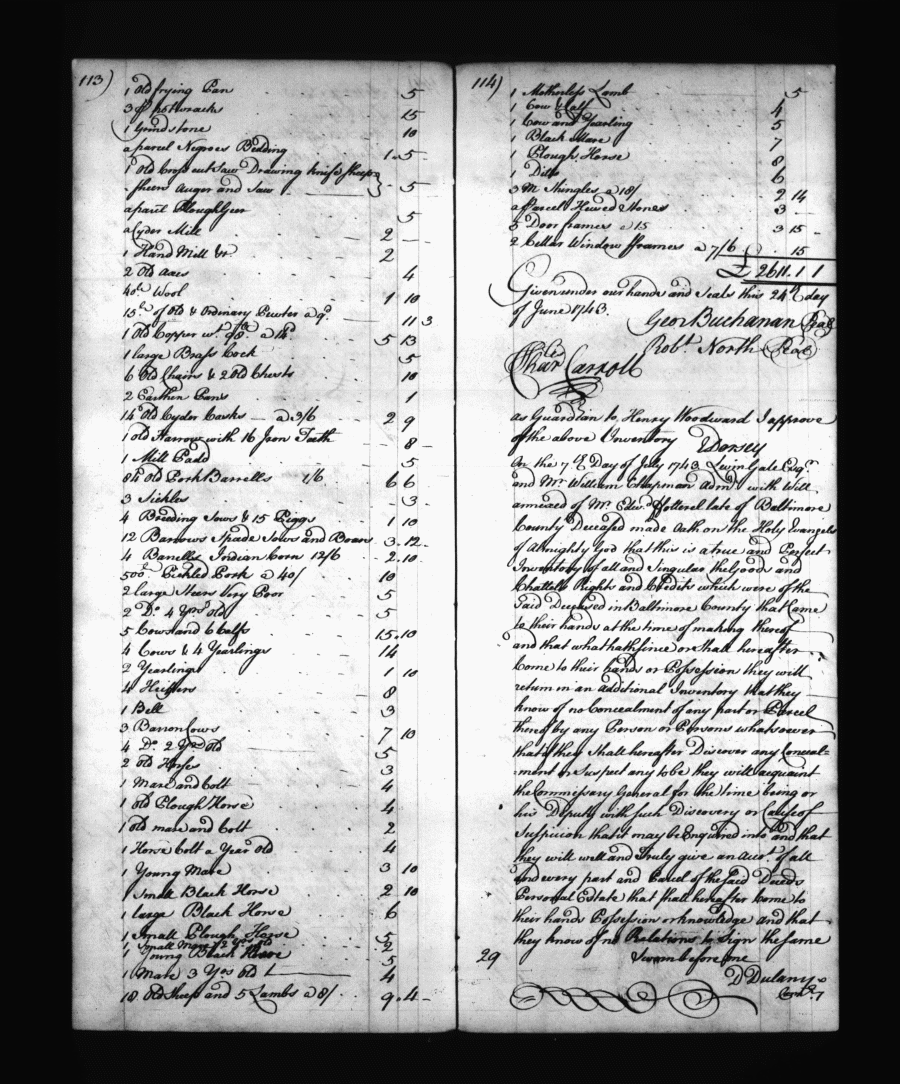 113)
1 Old frying Pan .. 5
3 pr pottracks .. 15
1 Grindstone .. 10
a parcel Negroes Bedding .. 1 .. 5
1 Old Cross cut Saw Drawing knife Sheep
sheers Auger and Saw .. 5
a parcel Plough Geer .. 5
a Cyder Mill .. 2
1 Hand Mill &c .. 2
2 Old Axes .. 4
40 lb Wool .. 1 10
15 lb of old & Ordinary Pewter a 9d .. 11 3
1 Old Copper wt .. 5 13
1 large Brass Cock .. 5
6 Old Chairs & 2 old Chests .. 10
2 Earthen Pans .. 1
14 Old Cyder Casks a 3/6 .. 2 9
1 old Harrow with 16 Iron Teeth .. 8
1 Mill .. 5
84 old Pork Barrells 1/6 .. 6 6
3 Sickles .. 3
4 Breeding Sows & 15 Piggs .. 1 10
12 Barrows Spade Sows and Boars 3 .. 12
4 Barrells Indian Corn 12/6 .. 2 .. 10
500 lb Pickled Pork a 40/ .. 10
2 large Steers very Poor .. 5
2 Do 4 Yrs old .. 5
5 Cows and 6 Calfs .. 15 .. 10
4 Cows & 4 Yearlings .. 14
2 Yearlings .. 1 10
4 Heiffers .. 8
1 Bell .. 3
3 Barron Cows .. 7 10
4 Do 2 Yrs old .. 5
2 old Horses .. 3
1 Mare and Colt .. 4
1 old Plough Horse .. 4
1 old mare and Colt .. 2
1 Horse Colt a Year old .. 4
1 Young Mare .. 3 10
1 Small Black Horse .. 2 10
1 large Black Horse .. 6
1 Small Plough Horse .. 5
1 Small Mare 2 Yrs old .. 2
1 Young Black Horse .. 5
1 Mare 3 Yrs old .. 4
18 Old Sheep and 5 Lambs a 8/ .. 9 .. 4
114)
1 Motherless Lamb .. 5
1 Cow & Calf .. 4
1 Cow and Yearling .. 5
1 Black Mare .. 7
1 Plough Horse .. 8
1 Ditto .. 6
3 M Shingles a 18/ .. 2 14
a Parcel Hewed Stones .. 3
5 Door frames a 15 .. 3 15
2 Cellar Window Frames a 7/6 .. 15
£ 2611 .. 1 1
Given under our hands and Seals this 24th day
of June 1743
Geor Buchanan Seal
Robt North Seal
Char Carroll
as Guardian to Henry Woodward I approve
of the above Inventory E Dorsey
On the 7th Day of July 1743 Levin Gale Esqr
and Mr William Chapman Admrs with Will
annexed of Mr Edwd late of Baltimore
County Deceased made Oath on the Holy Evangels
of Almighty God that this is a true and Perfect
Inventory of all and Singular the Goods and
Chattells Rights and Credits which were of the
Said Deceased in Baltimore County that Came
to their hands at the time of making thereof
and that what hath since or shall hereafter
come to their hands or Possession they will
return in an additional Inventory that they
know of no Concealment of any part or Parcel
thereof by any Person or Persons whatsoever
that if they Shall hereafter Discover any Conceal-
-ment or suspect any to be they will acquaint
the Commissary General for the time being or
his Deputy with such Discovery or Cause of
Suspicion that it may be Enquired into and that
they will well and Truly give an Acct of all
and every part and Parcel of the said Deceds
Personal Estate that shall hereafter come to
their hands Possession or knowledge and that
they know of no Relations to Sign the same
29 Sworn before me
D Dulany